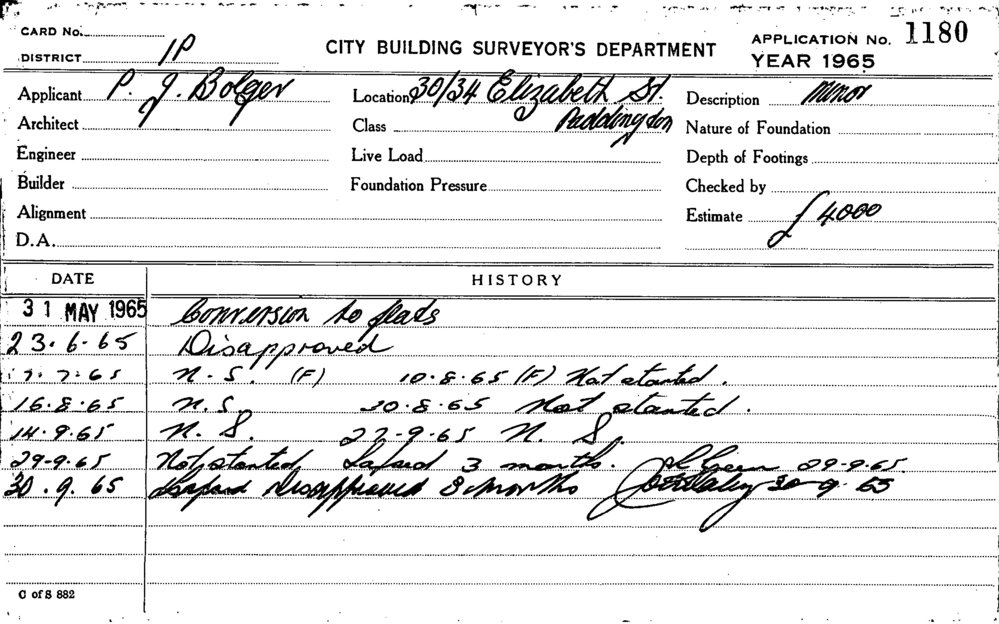 CARD No.
DISTRICT 1P
CITY BUILDING SURVEYOR'S DEPARTMENT
APPLICATION No. 1180
YEAR 1965
Applicant P. J. Bolger
Location 30/34 Elizabeth St.
Paddington
Description Minor
Architect
Class
Nature of Foundation
Engineer
Live Load
Depth of Footings
Builder
Foundation Pressure
Checked by
Alignment
Estimate £4000
D.A.
DATE HISTORY
31 MAY 1965 Conversion to flats
23.6.65 Disapproved
7.65 N.S. (F) 10.8.65 (F) Not started.
16.8.65 N.S. 8.65 Not started.
14.9.65 N.S. 9.65 N.S.
29-9-65 Not started Lapsed 3 months. Green 29-9-65.
30.9.65 Lapsed Disapproved 3 months 30-9-65
C of S 882